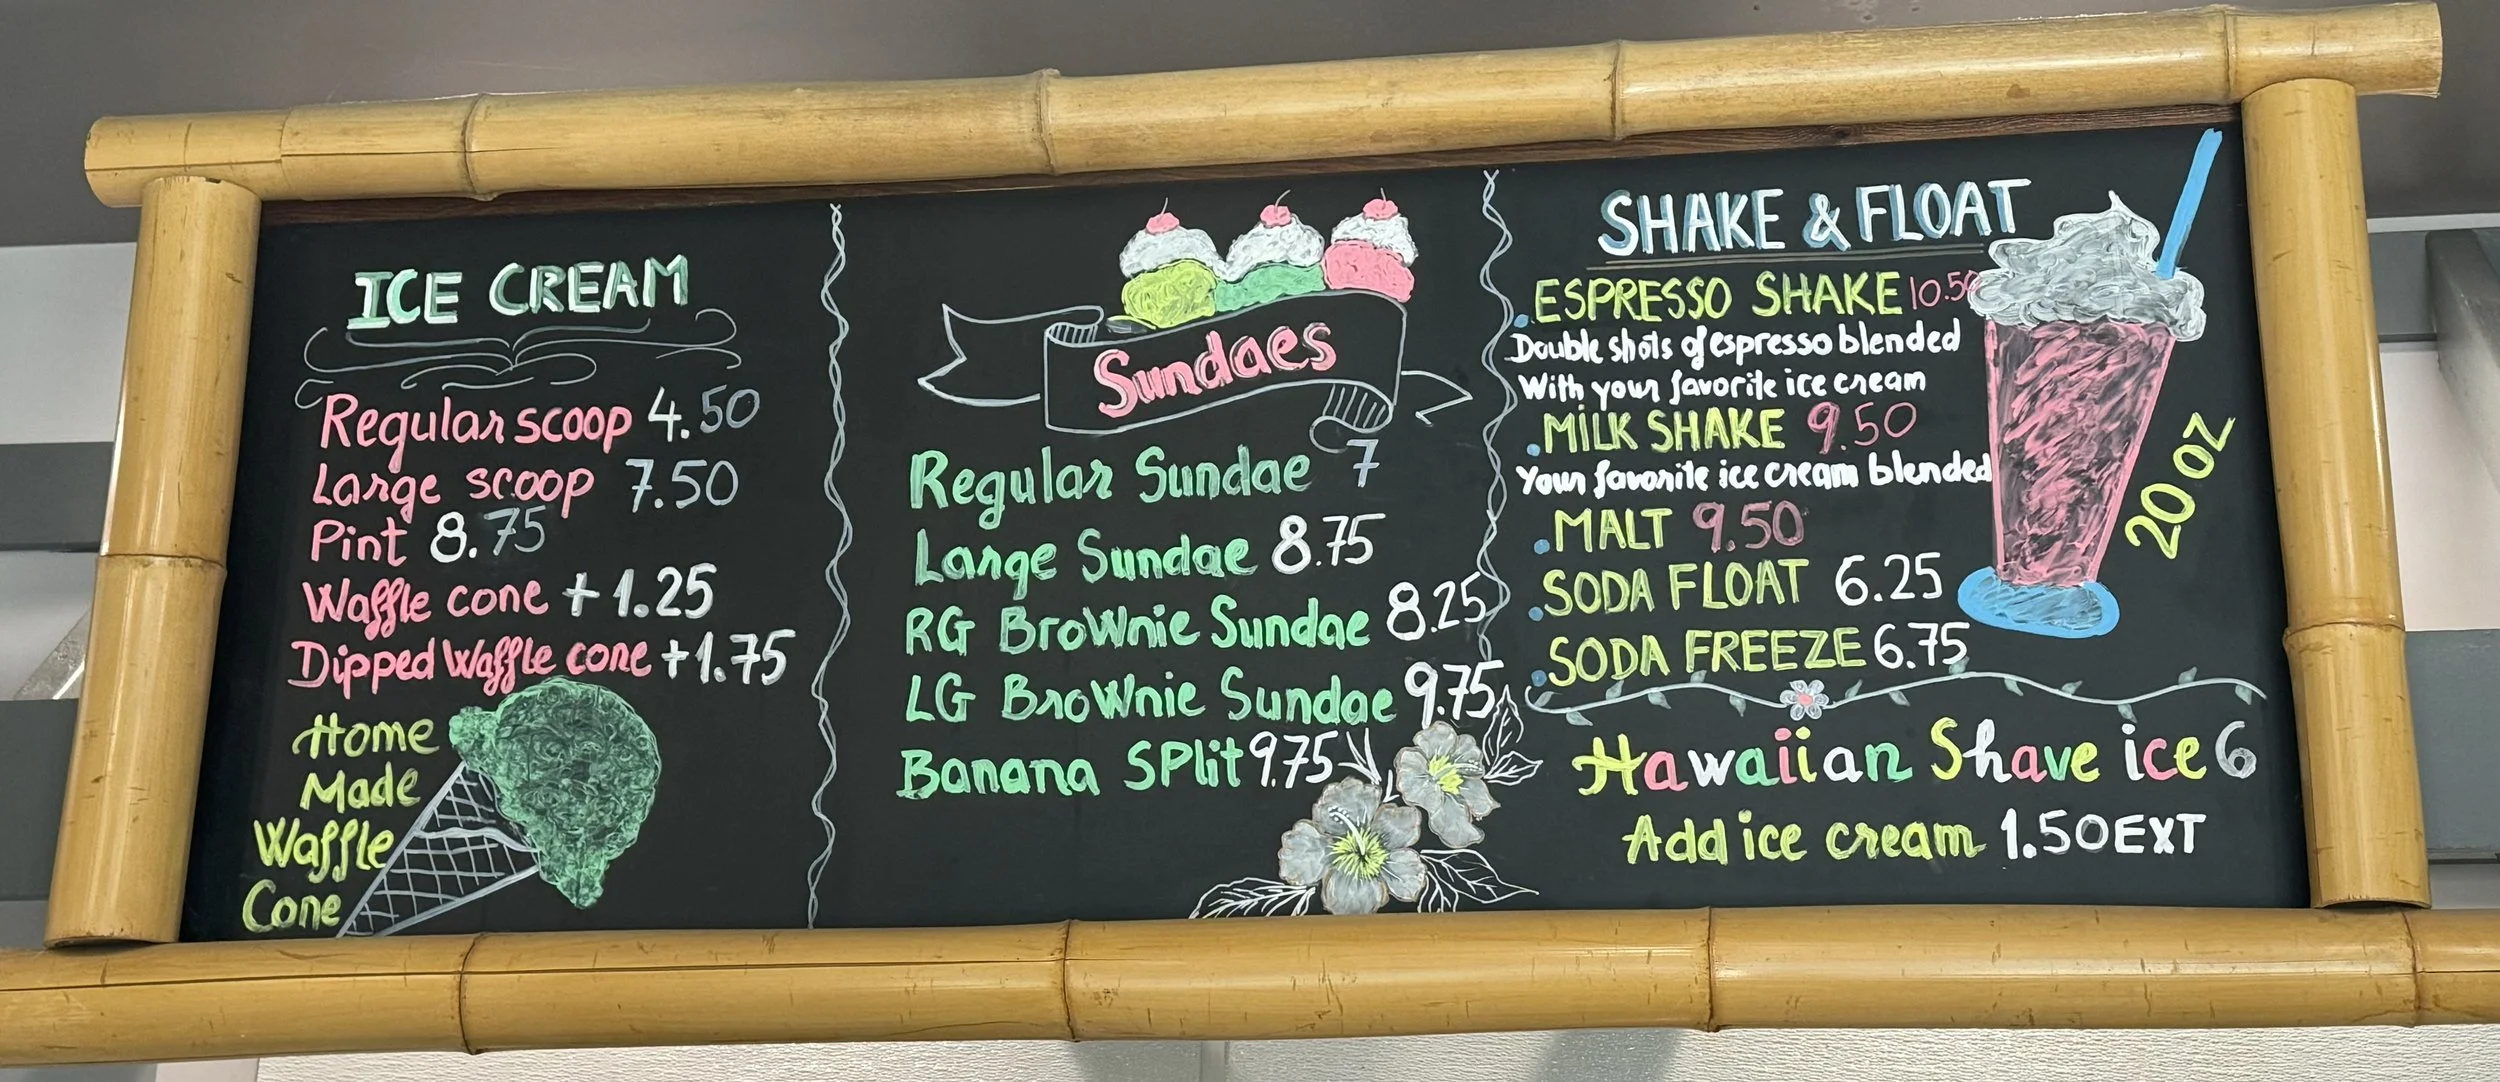 ICE CREAM
Regular scoop 4.50
Large scoop 7.50
Pint 8.75
Waffle cone +1.25
Dipped Waffle cone +1.75
Home
Made
Waffle
Cone
Sundaes
Regular Sundae 7
Large Sundae 8.75
RG BroWnie Sundae 8.25
LG BroWnie Sundae 9.75
Banana SPlit 9.75
SHAKE & FLOAT
.ESPRESSO SHAKE 10.50
Double shots of espresso blended
With your favorite ice cream
.MILK SHAKE 9.50
Your favorite ice cream blended
.MALT 9.50
.SODA FLOAT 6.25
.SODA FREEZE 6.75
20 OZ
Hawaiian Shave ice 6
Add ice cream 1.50 EXT